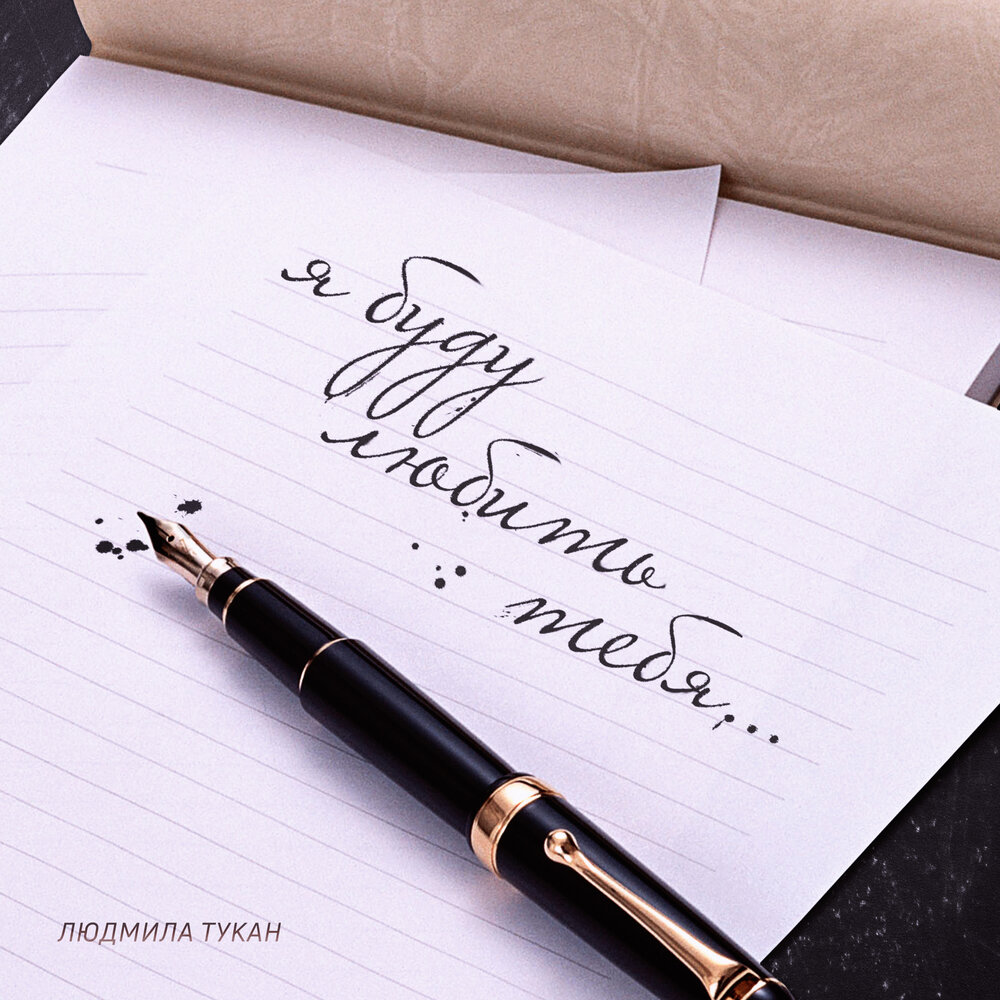 я буду
любить
тебя...
ЛЮДМИЛА ТУКАН